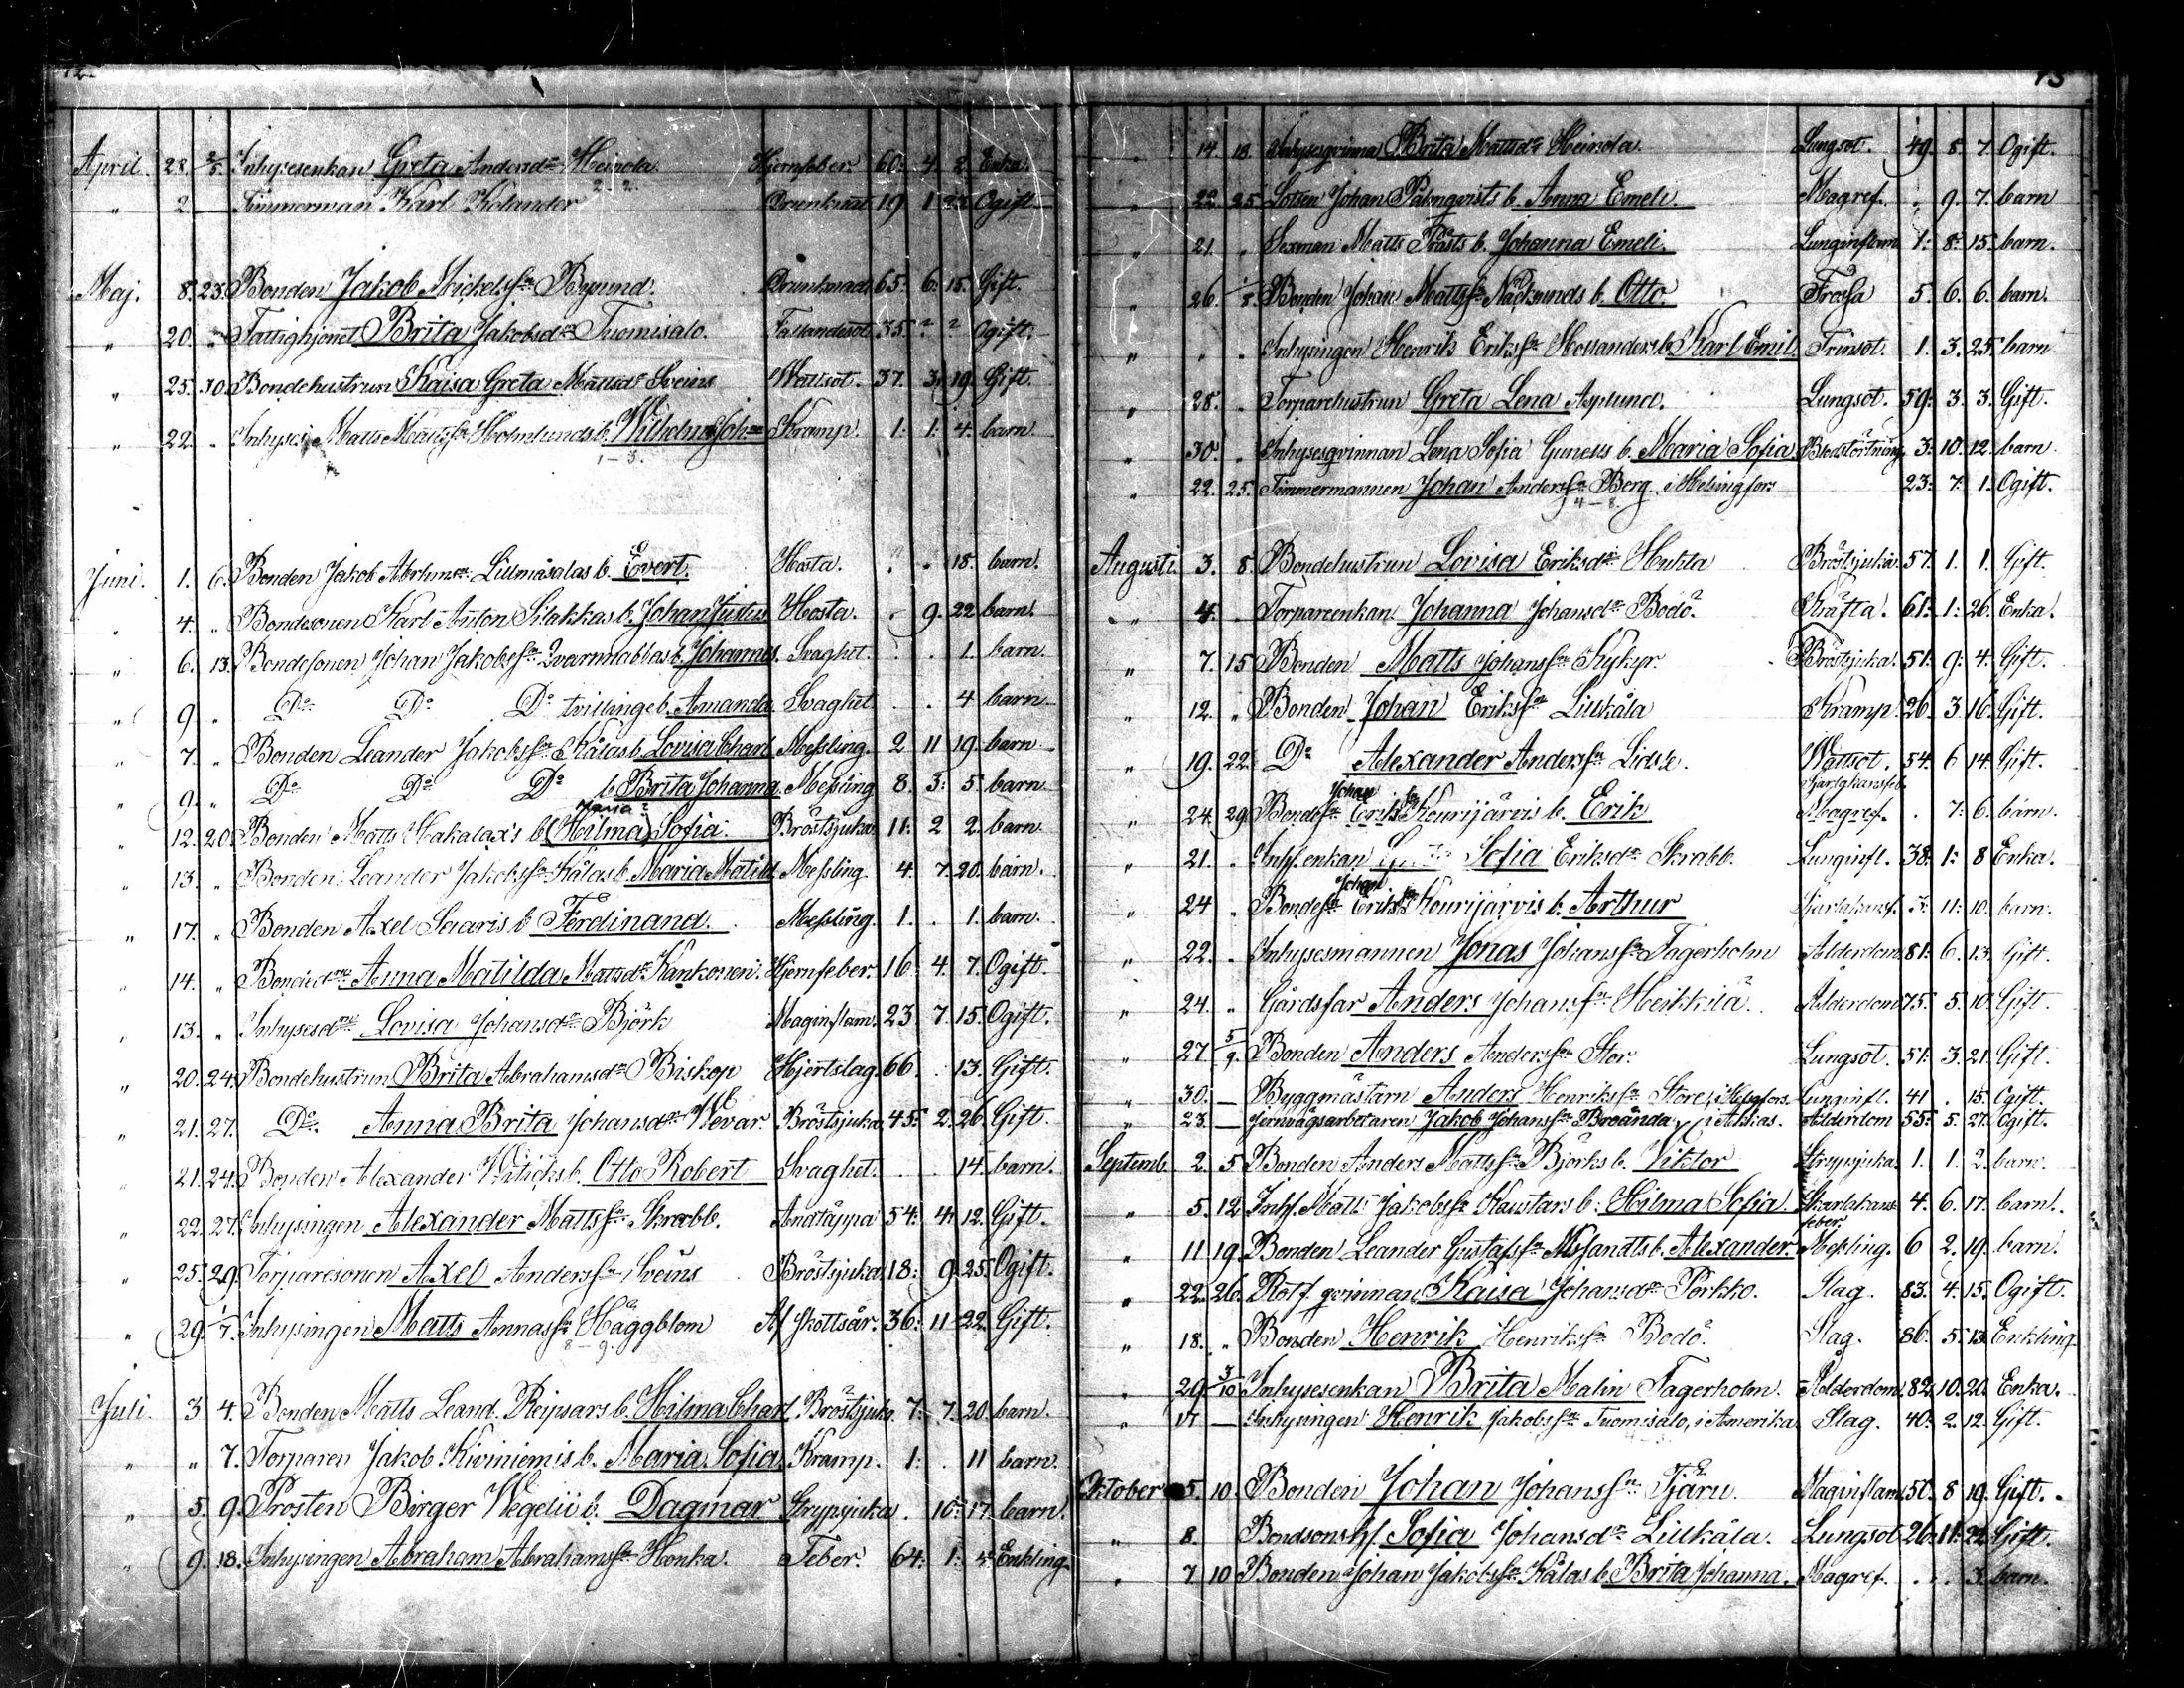 72.
April. 28. 2/5. Inhysesenkan Greta Andersdr Heinola. Hjernfeber. 60. 4. 2. Enka.
" 2. — Timmerman Karl Kolander Drunknat 19 1 Ogift
Maj. 8. 23. Bonden Jakob Mickelssn Byrund. Drunknad. 65. 6. 15. Gift.
" 20. " Fattighjonet Brita Jakobsdr Tuomisalo. Fallandesot. 35. ? ? Ogift.
" 25. 30. Bondehustrun Kaisa Greta Mattsdr Sveins Wattsot. 37. 3. 19. Gift.
" 22. " Inhyses. Matts Mattssn Holmlunds b. Wilhelm Joh. Kramp. 1. 1. 4. barn.
Juni. 1. 6. Bonden Jakob Abrhmsn Lillmåsalas b. Evert. Hosta. . . 18. barn.
" 4. " Bondesonen Karl Anton Silakkas b. Johan Julius Hosta. . 9. 22 barn.
" 6. 13. Bondesonen Johan Jakobssn Qvarnnabbas b. Johannes. Svaghet. . . 1. barn.
" 9. " Do Do Do tvilling b. Amanda Svaghet. . . 4 barn
" 7. " Bonden Leander Jakobssn Kålas b. Lovisa Charl Messling. 2 11 19. barn
" 9. " Do Do Do b. Brita Johanna. Messling 8. 3. 5. barn.
Maria?
" 12. 20. Bonden Matts Hakalax's b. (Hilma) Sofia. Bröstsjuka. 11. 2 2. barn.
" 13. " Bonden Leander Jakobssn Kålas b. Maria Matild Messling. 4. 7. 20. barn.
" 17. " Bonden Axel Saaris b. Ferdinand. Messling. 1. . 1. barn.
" 14. " Bonded. Anna Matilda Mattsdr Kankonen. Hjernfeber. 16. 4. 7. Ogift.
" 13. " Inhysesd. Lovisa Johansdr Björk Maginflam. 23 7. 15. Ogift.
" 20. 24. Bondehustrun Brita Abrahamsdr Biskop Hjertslag. 66. . 13. Gift.
" 21. 27. Do. Anna Brita Johansdr Wevar. Bröstsjuka. 45. 2. 26. Gift.
" 21. 24. Bonden Alexander Witicks b. Otto Robert Svaghet. . . 14. barn.
" 22. 27. Inhysingen Alexander Mattssn Skrabb. Andtäppa 54. 4. 12. Gift.
" 25. 29. Torparesonen Axel Anderssn Sveins Bröstsjuka 18. 9. 25. Ogift.
" 29. 1/7. Inhysingen Matts Annassn Häggblom Af skottsår. 36. 11 22. Gift.
8–9.
Juli. 3 4. Bonden Matts Leand. Reipsars b. Hilma Charl. Bröstsjuka. 7. 7. 20 barn.
" " 7. Torparen Jakob Kiviniemis b. Maria Sofia. Kramp. 1. . 11 barn.
" 5. 9. Prosten Birger Wegelii b. Dagmar Strypsjuka . 10. 17. barn.
" 9. 18. Inhysingen Abraham Abrahamssn Honka. Feber. 64. 1. 4. Enkling.
73
" 14. 18. Inhysesqvinna Brita Mattsdr Heinola. Lungsot. 49. 8. 7. Ogift.
" 22. 25. Lotsen Johan Palmqvists b. Anna Emeli. Magref. . 9. 7. barn
" 21. " Sexman Matts Prästs b. Johanna Emeli. Lunginflam 1. 8. 15. barn.
" 26. 1/8. Bonden Johan Mattssn Näcksunds b. Otto. Frossa 5. 6. 6. barn.
" " " Inhysingen Henrik Erikssn Hollanders b. Karl Emil. Trinsot. 1. 3. 25. barn
" 28. " Torparehustrun Greta Lena Asplund. Lungsot. 59. 3. 3. Gift.
" 30. " Inhysesqvinnan Lena Sofia Gunells b. Maria Sofia. Blodstörtning. 3. 10. 12. barn.
" 22. 25. Timmermannen Johan Anderssn Berg. i Helsingfors 23. 7. 1. Ogift.
4–8.
Augusti. 3. 8. Bondehustrun Lovisa Eriksdr Huhta Bröstsjuka. 57. 1. 1. Gift.
" 4. " Torpareenkan Johanna Johansdr Bodö. Kräfta. 61. 1. 26. Enka.
" 7. 15 Bonden Matts Johanssn Kykyr. Bröstsjuka. 51. 9. 4. Gift.
" 12. " Bonden Johan Erikssn Lillkåla Kramp 26. 3. 16. Gift.
" 19. 22. Do Alexander Anderssn Lidsle. Wattsot. 54. 6 14. Gift.
Johan Skarlakansfeb.
" 24. 29. Bondesn Eriks Kourijärvis b. Erik Magref. . 7. 6. barn.
" 21. " Inh. enkan Sofia Eriksdr Skrabb. Lunginfl. 38. 1. 8 Enka.
Johan
" 24 " Bondesn Eriks Kourijärvis b. Arthur Skarlakansf. 3. 11. 10. barn.
" 22. " Inhysesmannen Jonas Johanssn Fagerholm Ålderdom. 81. 6. 13. Gift.
" 24. " Gårdsfar Anders Johanssn Heikkilä. Ålderdom 75. 5. 10. Gift.
" 27 5/9. Bonden Anders Anderssn Stor. Lungsot. 51. 3. 21. Gift.
" 30. — Byggmästarn Anders Henrikssn Store, i Helsgfors. Lunginfl. 41 . 15. Ogift.
" 23. — Jernvägsarbetaren Jakob Johanssn Breända, i Akkas. Ålderdom 55. 5. 27. Ogift.
Septemb. 2. 5 Bonden Anders Mattssn Björks b. Viktor Strypsjuka. 1. 1. 2. barn.
" 5. 12 Inh. Matts Jakobssn Kaustars b. Hilma Sofia. Skarlakans 4. 6. 17. barn.
feber.
" 11 19. Bonden Leander Gustafssn Nissandts b. Alexander. Messling. 6 2. 19. barn.
" 22. 26. Rotf. qvinnan Kaisa Johansdr Porkko. Slag. 83. 4. 15. Ogift.
" 18. " Bonden Henrik Henrikssn Bodö. Slag. 86. 5. 13. Enkling.
" 29. 3/10 Inhysesenkan Brita Malin Fagerholm. Ålderdom. 82. 10. 20. Enka.
" 17. — Inhysingen Henrik Jakobssn Tuomisalo, i Amerika. Slag. 40. 2. 12. Gift.
Oktober 5. 10. Bonden Johan Johanssn Tjäru. Maginflam. 50. 8 19. Gift.
" 8. Bondsonshf. Sofia Johansdr Lillkåla. Lungsot 26. 11. 22. Gift.
" 7 10 Bonden Johan Jakobssn Kålas b. Brita Johanna. Magref. . . 3. barn.